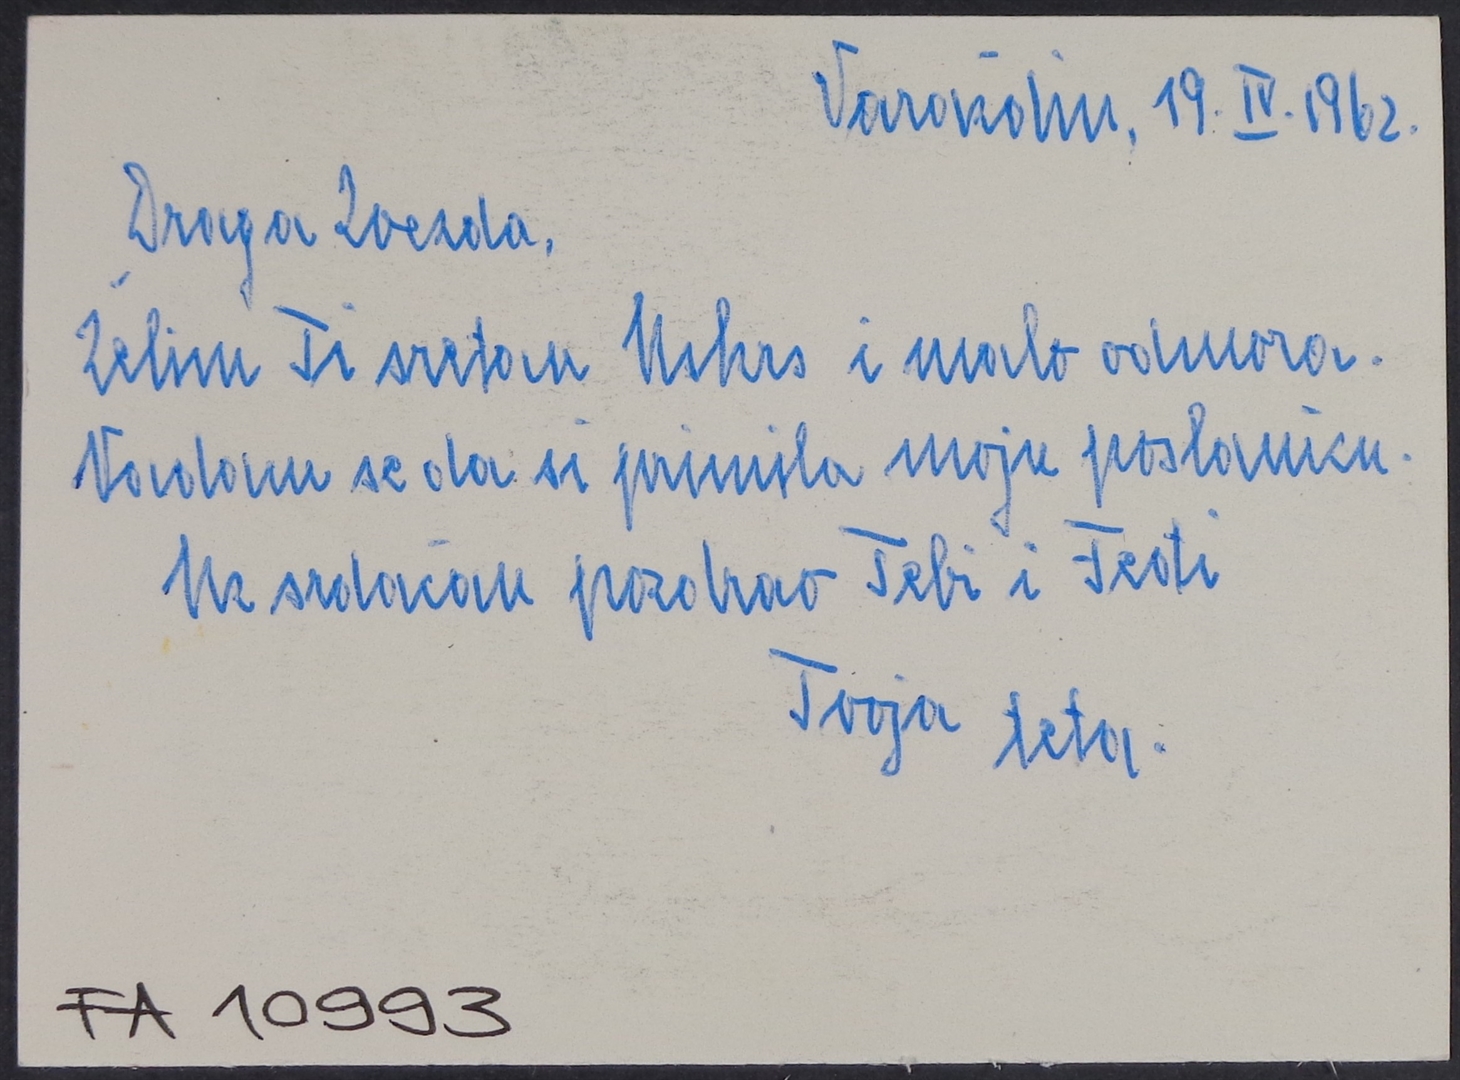 Varaždin, 19. IV. 1962.
Draga Zvezda,
Želim Ti sretan Uskrs i malo odmora.
Nadam se da si primila moju poslanicu.
Uz srdačan pozdrav Tebi i Fedi
Tvoja teta.
FA 10993